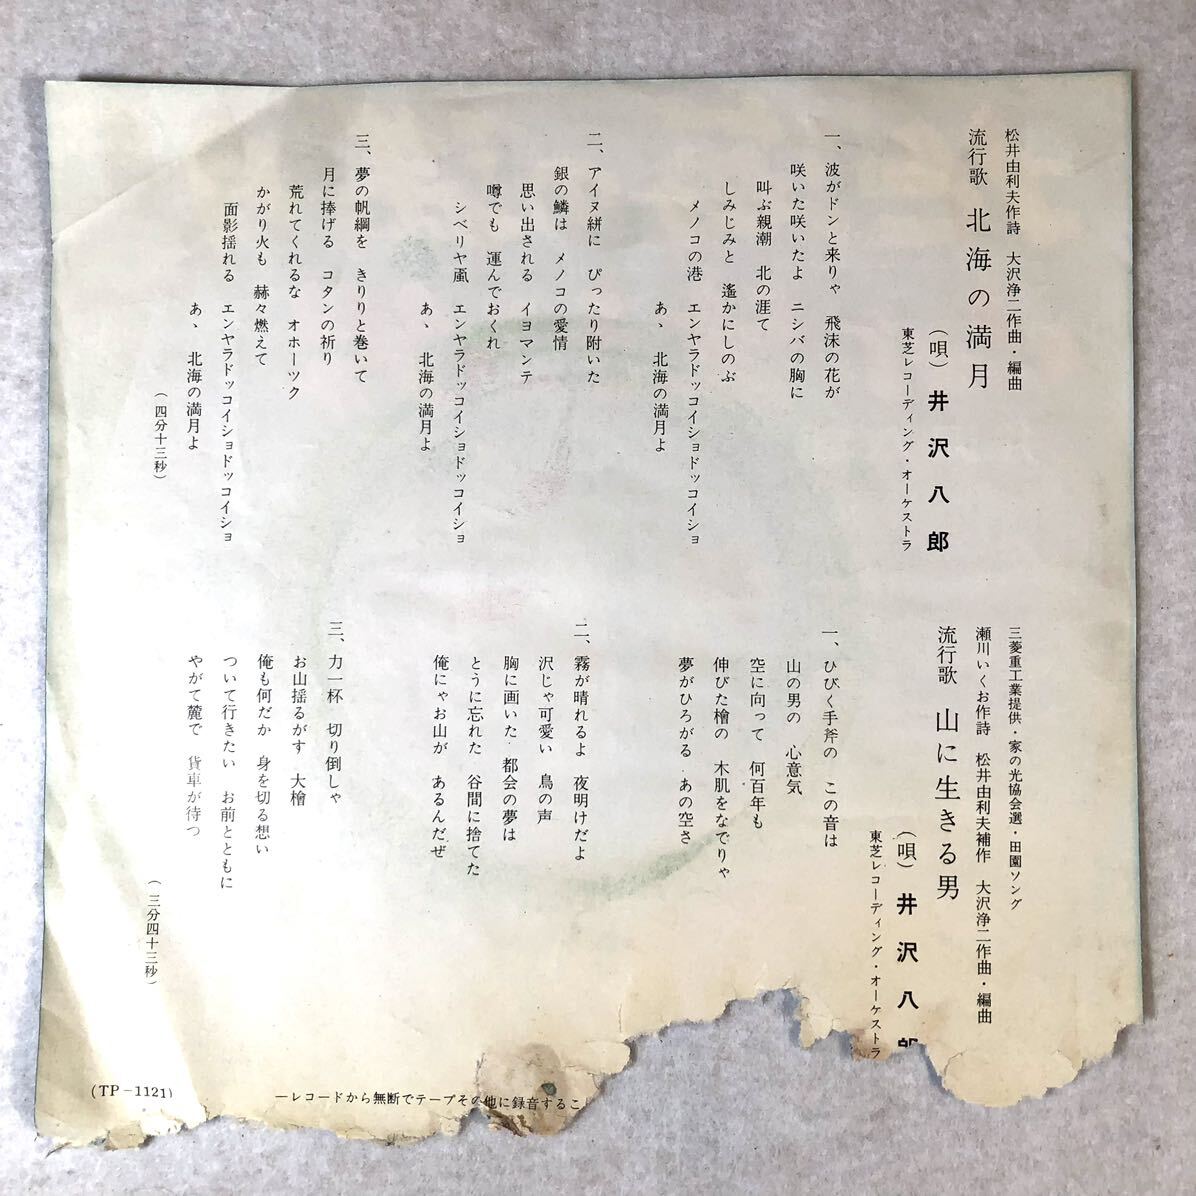 松井由利夫作詩　大沢浄二作曲・編曲
流行歌　北海の満月
（唄）井沢八郎
東芝レコーディング・オーケストラ
一、波がドンと来りゃ　飛沫の花が
咲いた咲いたよ　ニシパの胸に
叫ぶ親潮　北の涯て
しみじみと　遙かにしのぶ
メノコの港　エンヤラドッコイショドッコイショ
あゝ　北海の満月よ
二、アイヌ絣に　ぴったり附いた
銀の鱗は　メノコの愛情
思い出される　イヨマンテ
噂でも　運んでおくれ
シベリヤ颪　エンヤラドッコイショドッコイショ
あゝ　北海の満月よ
三、夢の帆綱を　きりりと巻いて
月に捧げる　コタンの祈り
荒れてくれるな　オホーツク
かがり火も　赫々燃えて
面影揺れる　エンヤラドッコイショドッコイショ
あゝ　北海の満月よ
（四分十三秒）
三菱重工業提供・家の光協会選・田園ソング
瀬川いくお作詩　松井由利夫補作　大沢浄二作曲・編曲
流行歌　山に生きる男
（唄）井沢八郎
東芝レコーディング・オーケストラ
一、ひびく手斧の　この音は
山の男の　心意気
空に向って　何百年も
伸びた檜の　木肌をなでりゃ
夢がひろがる　あの空さ
二、霧が晴れるよ　夜明けだよ
沢じゃ可愛い　鳥の声
胸に画いた　都会の夢は
とうに忘れた　谷間に捨てた
俺にゃお山が　あるんだぜ
三、力一杯　切り倒しゃ
お山揺るがす　大檜
俺も何だか　身を切る想い
ついて行きたい　お前とともに
やがて麓で　貨車が待つ
（三分四十三秒）
(TP－1121)
―レコードから無断でテープその他に録音するこ